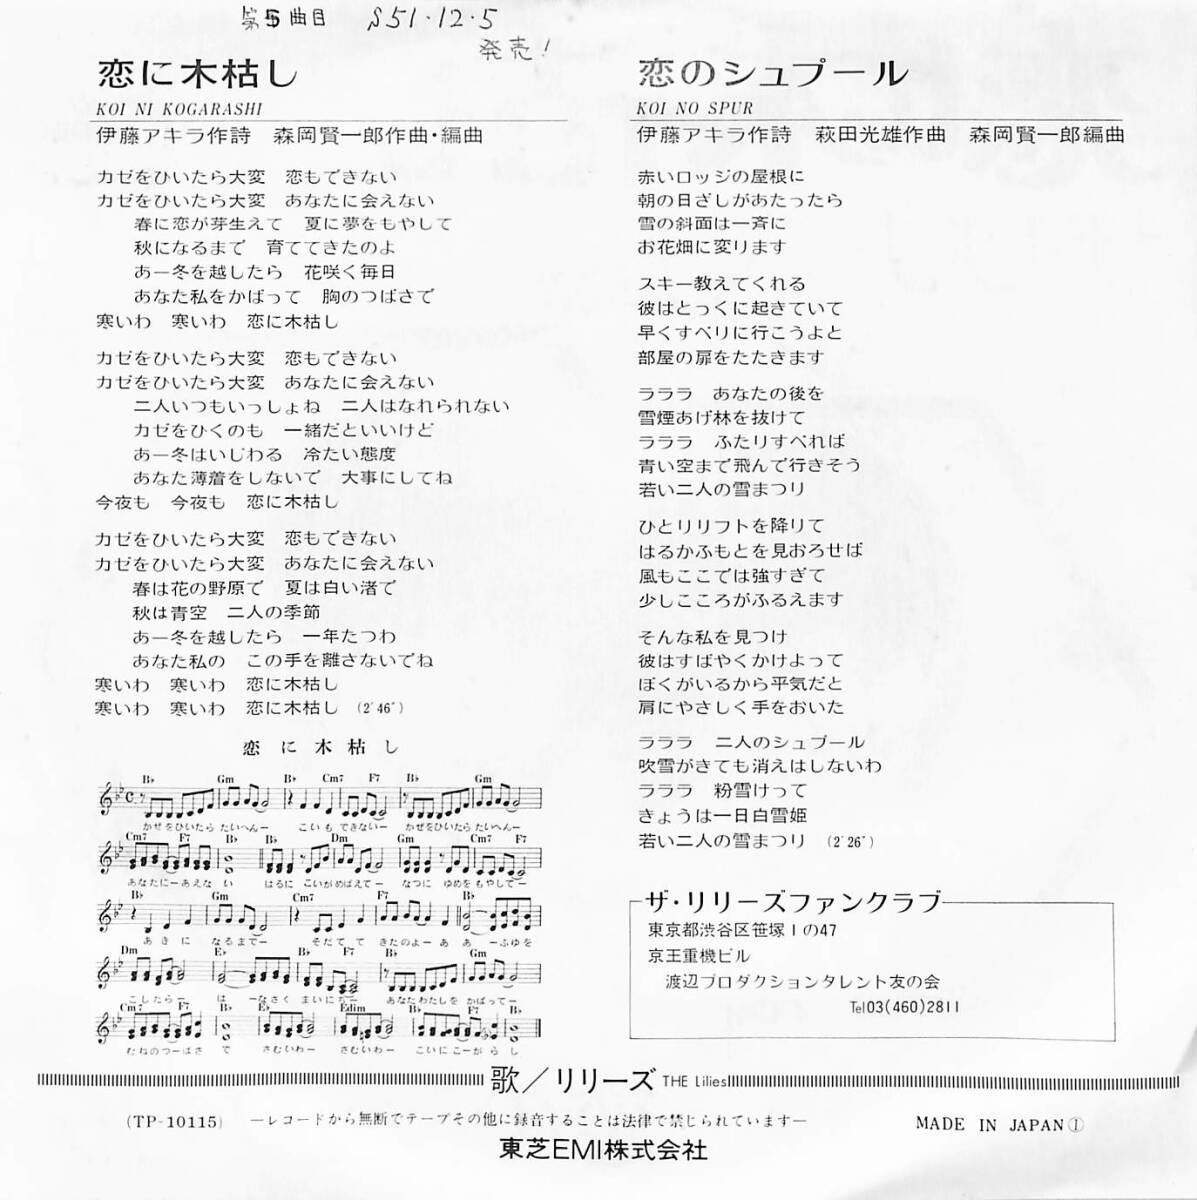 第5曲目 S51・12・5
発売!
恋に木枯し
KOI NI KOGARASHI
伊藤アキラ作詩 森岡賢一郎作曲・編曲
カゼをひいたら大変 恋もできない
カゼをひいたら大変 あなたに会えない
春に恋が芽生えて 夏に夢をもやして
秋になるまで 育ててきたのよ
あー冬を越したら 花咲く毎日
あなた私をかばって 胸のつばさで
寒いわ 寒いわ 恋に木枯し
カゼをひいたら大変 恋もできない
カゼをひいたら大変 あなたに会えない
二人いつもいっしょね 二人はなれられない
カゼをひくのも 一緒だといいけど
あー冬はいじわる 冷たい態度
あなた薄着をしないで 大事にしてね
今夜も 今夜も 恋に木枯し
カゼをひいたら大変 恋もできない
カゼをひいたら大変 あなたに会えない
春は花の野原で 夏は白い渚で
秋は青空 二人の季節
あー冬を越したら 一年たつわ
あなた私の この手を離さないでね
寒いわ 寒いわ 恋に木枯し
寒いわ 寒いわ 恋に木枯し (2'46")
恋に木枯し
B♭ Gm B♭ Cm7 F7 B♭ Gm
かぜをひいたら たいへんー こいも できないー かぜをひいたら たいへんー
Cm7 F7 B♭ B♭ Dm Gm Cm7 F7
あなたにーあえな い はるに こいがめばえてー なつに ゆめを もやしてー
B♭ Gm Cm7 F7 B♭
あきに なるまでー そだてて きたのよー あ あーふゆを
Dm E♭ B♭ F7 B♭ Gm
こしたらー は ーなさく まいにちー あなたわたしを かばってー
Cm7 F7 B♭ E♭ Edim B♭ F7 B♭
むねのつーばさ で さむいわー さむいわー こいにこーがら し
恋のシュプール
KOI NO SPUR
伊藤アキラ作詩 萩田光雄作曲 森岡賢一郎編曲
赤いロッジの屋根に
朝の日ざしがあたったら
雪の斜面は一斉に
お花畑に変ります
スキー教えてくれる
彼はとっくに起きていて
早くすべりに行こうよと
部屋の扉をたたきます
ラララ あなたの後を
雪煙あげ林を抜けて
ラララ ふたりすべれば
青い空まで飛んで行きそう
若い二人の雪まつり
ひとりリフトを降りて
はるかふもとを見おろせば
風もここでは強すぎて
少しこころがふるえます
そんな私を見つけ
彼はすばやくかけよって
ぼくがいるから平気だと
肩にやさしく手をおいた
ラララ 二人のシュプール
吹雪がきても消えはしないわ
ラララ 粉雪けって
きょうは一日白雪姫
若い二人の雪まつり (2'26")
ザ・リリーズファンクラブ
東京都渋谷区笹塚1の47
京王重機ビル
渡辺プロダクションタレント友の会
Tel03(460)2811
歌/リリーズ THE Lilies
(TP-10115) ーレコードから無断でテープその他に録音することは法律で禁じられていますー MADE IN JAPAN①
東芝EMI株式会社